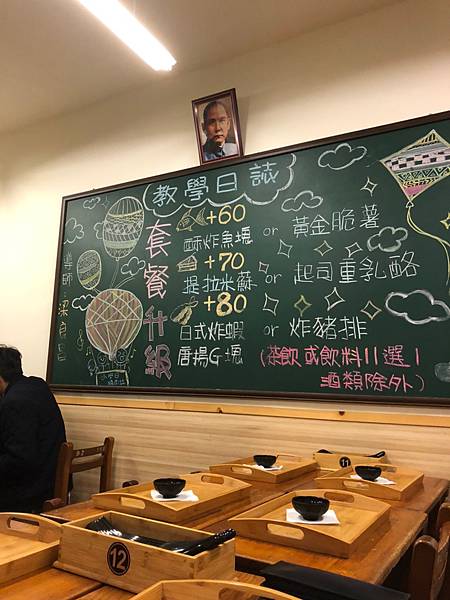 教學日誌
套餐升級
+60
酥炸魚塊 or 黃金脆薯
+70
提拉米蘇 or 起司重乳酪
+80
日式炸蝦 or 炸豬排
唐揚G塊
(茶飲或飲料11選1
酒類除外)
導師:梁
12
11